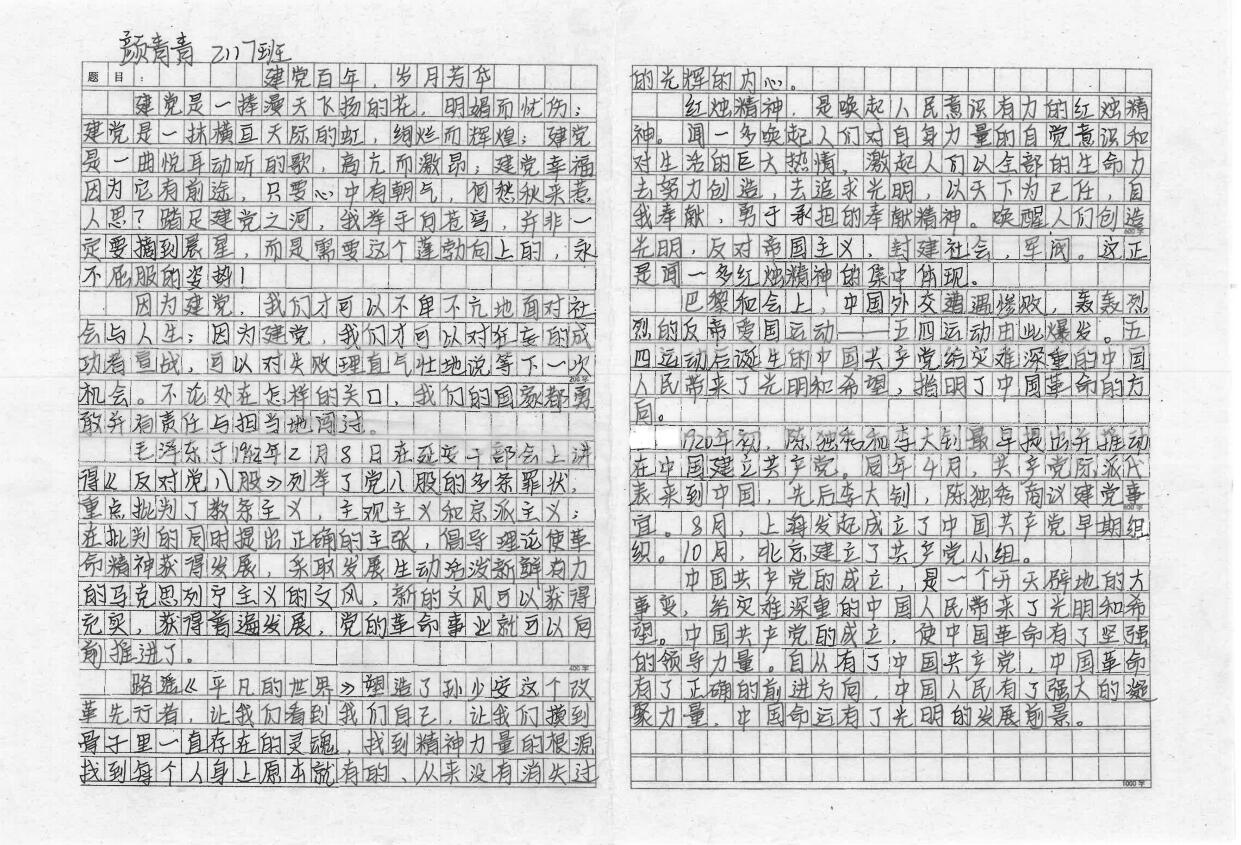 颜青青 2117班
题目：建党百年，岁月芳华
建党是一捧漫天飞扬的花，明媚而忧伤；
建党是一抹横亘天际的虹，绚烂而辉煌；建党
是一曲悦耳动听的歌，高亢而激昂；建党幸福
因为它有前途，只要心中有朝气，何愁秋来惹
人思？踏足建党之河，我举手向苍穹，并非一
定要摘到晨星，而是需要这个蓬勃向上的，永
不屈服的姿势！
因为建党，我们才可以不卑不亢地面对社
会与人生；因为建党，我们才可以对狂妄的成
功者宣战，可以对失败理直气壮地说等下一次
200字
机会。不论处在怎样的关口，我们的国家都勇
敢并有责任与担当地闯过。
毛泽东于1942年2月8日在延安干部会上讲
得《反对党八股》列举了党八股的多条罪状，
重点批判了教条主义，主观主义和宗派主义；
在批判的同时提出正确的主张，倡导理论使革
命精神获得发展，采取发展生动活泼新鲜有力
的马克思列宁主义的文风，新的文风可以获得
充实，获得普遍发展，党的革命事业就可以向
前推进了。
400字
路遥《平凡的世界》塑造了孙少安这个改
革先行者，让我们看到我们自己，让我们摸到
骨子里一直存在的灵魂，找到精神力量的根源
找到每个人身上原本就有的、从来没有消失过
的光辉的内心。
红烛精神，是唤起人民意识有力的红烛精
神。闻一多唤起人们对自身力量的自觉意识和
对生活的巨大热情，激起人们以全部的生命力
去努力创造，去追求光明，以天下为己任，自
我奉献，勇于承担的奉献精神。唤醒人们创造
600字
光明，反对帝国主义，封建社会，军阀。这正
是闻一多红烛精神的集中体现。
巴黎和会上，中国外交遭遇惨败，轰轰烈
烈的反帝爱国运动——五四运动由此爆发。五
四运动后诞生的中国共产党给灾难深重的中国
人民带来了光明和希望，指明了中国革命的方
向。
1920年初，陈独秀和李大钊最早提出并推动
在中国建立共产党。同年4月，共产党际派代
表来到中国，先后李大钊，陈独秀商议建党事
800字
宜。8月，上海发起成立了中国共产党早期组
织。10月，北京建立了共产党小组。
中国共产党的成立，是一个开天辟地的大
事变，给灾难深重的中国人民带来了光明和希
望。中国共产党的成立，使中国革命有了坚强
的领导力量。自从有了中国共产党，中国革命
有了正确的前进方向，中国人民有了强大的凝
聚力量，中国命运有了光明的发展前景。
1000字